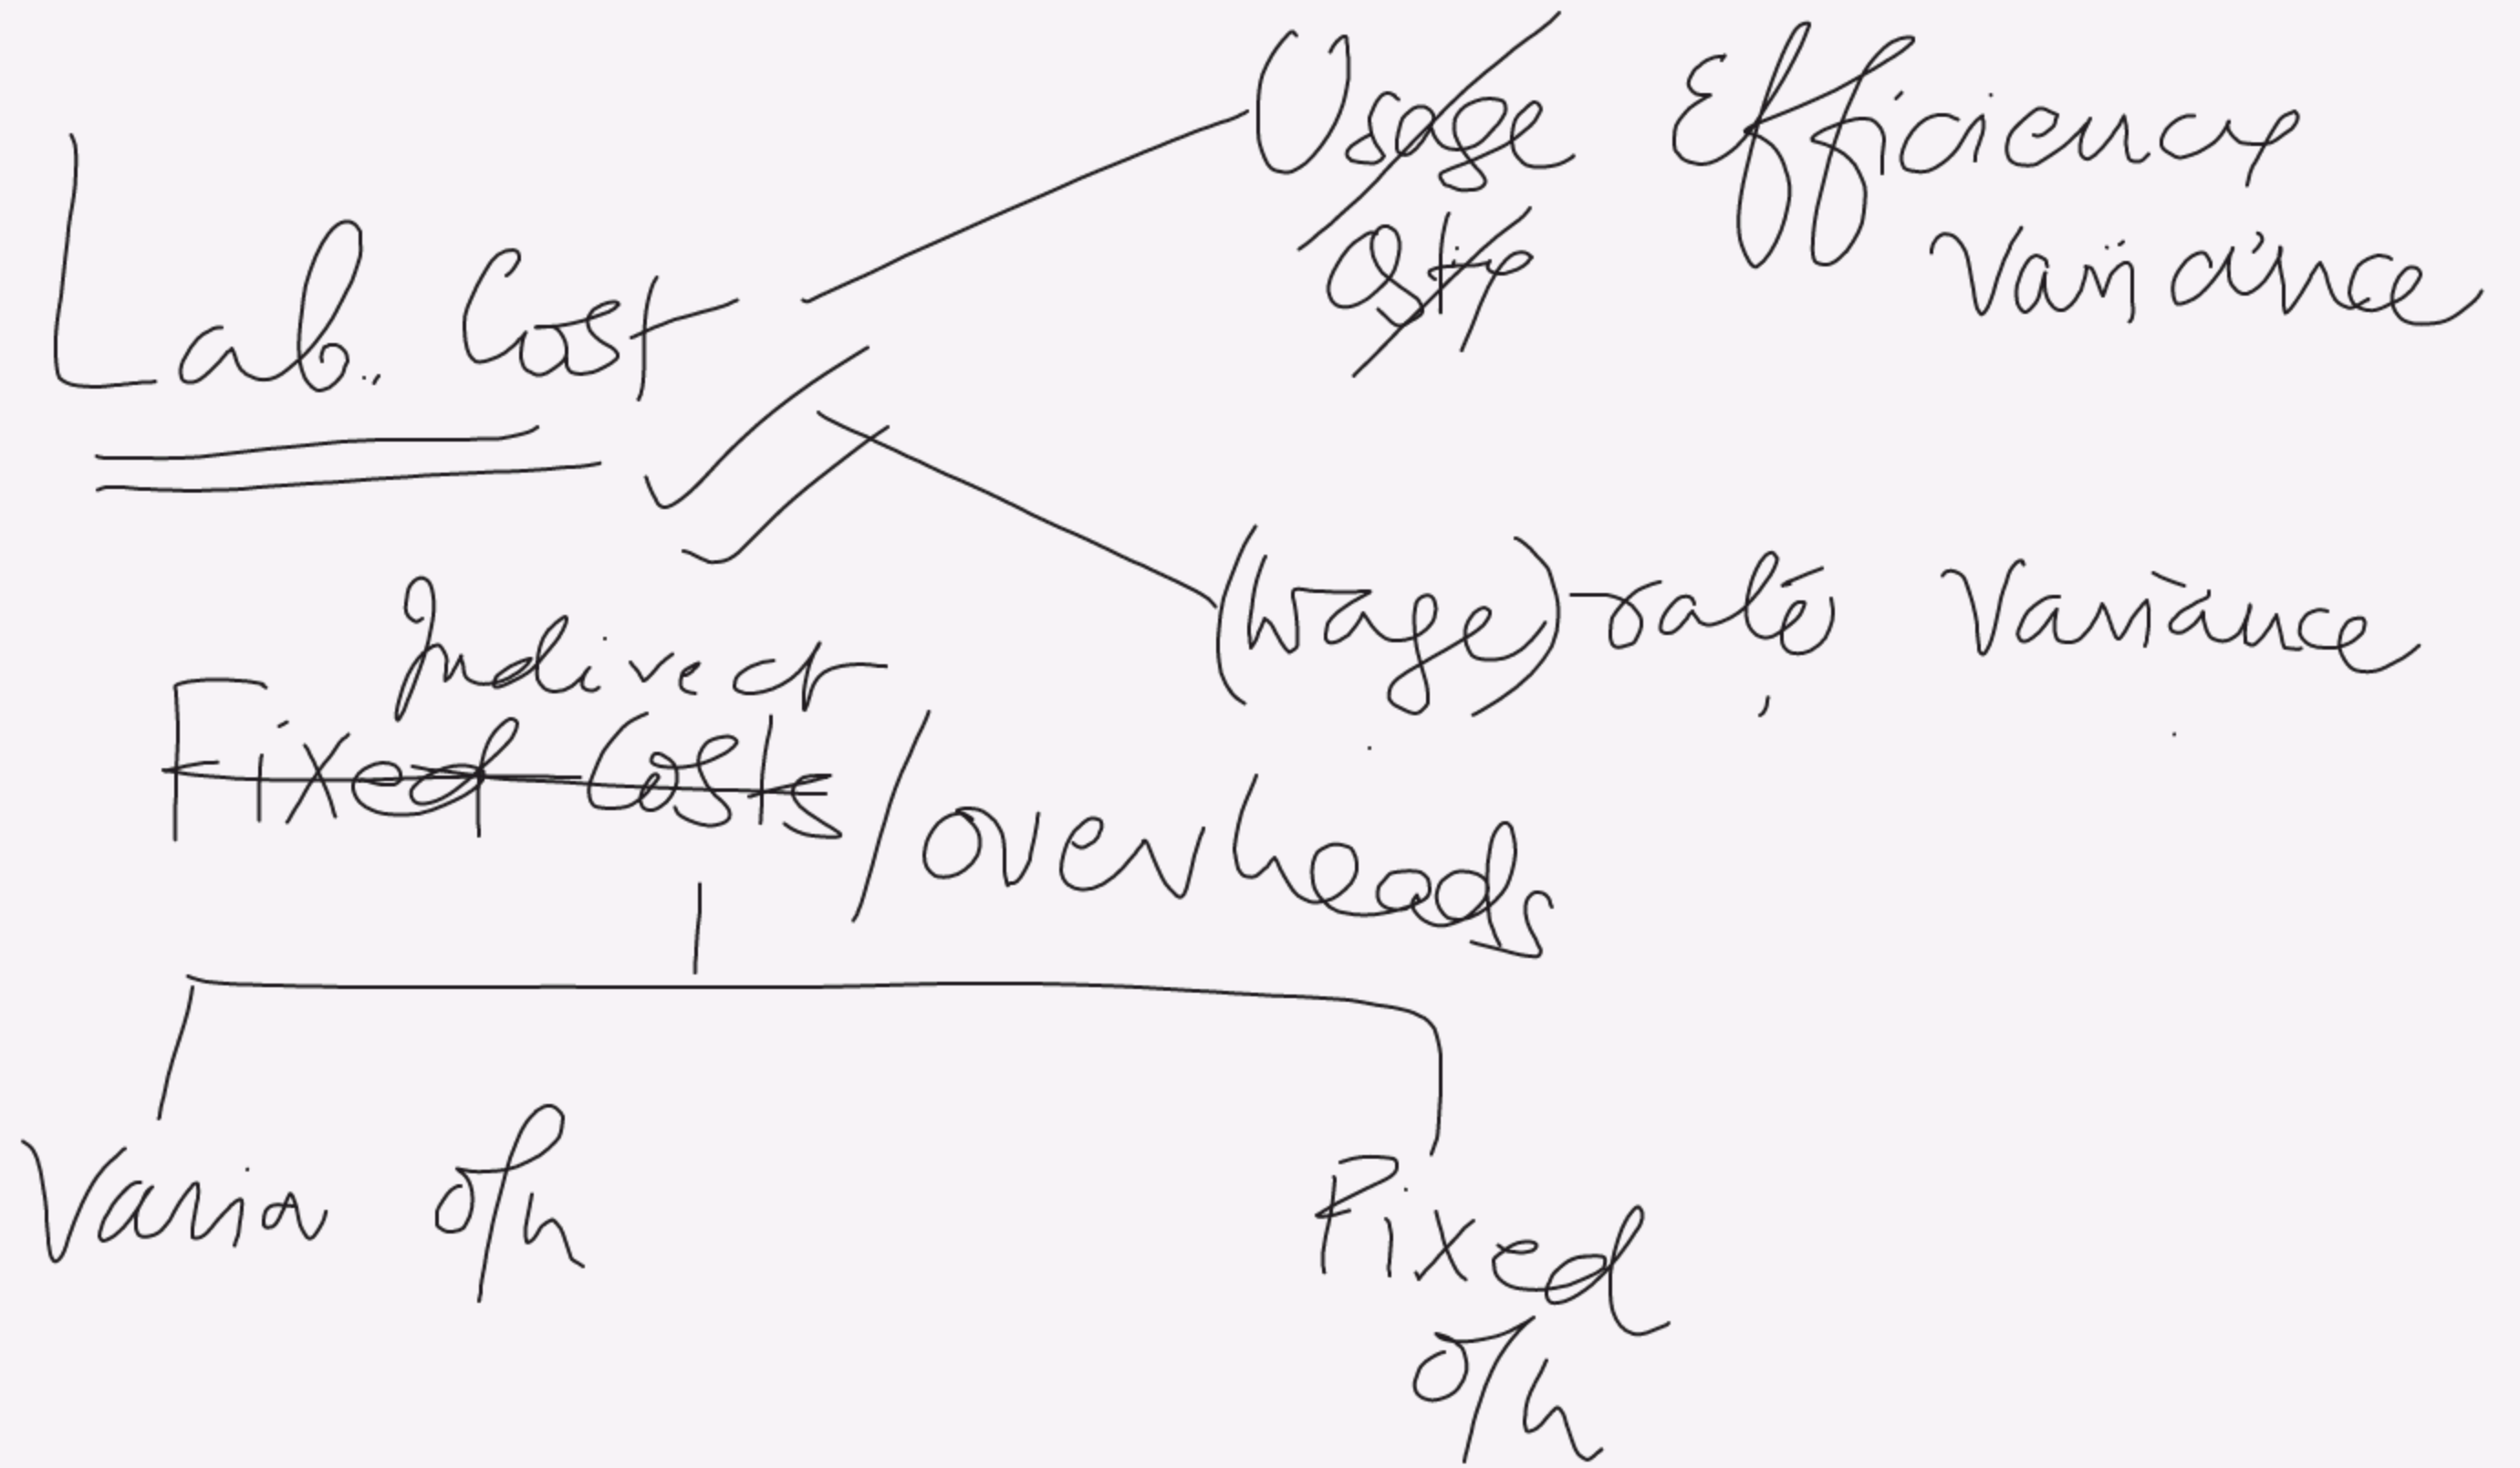 Usage Efficiency
Lab. Cost Qty Variance
(Wage) rate Variance
Indirect
Fixed Costs / overheads
Varia o/h Fixed
o/h